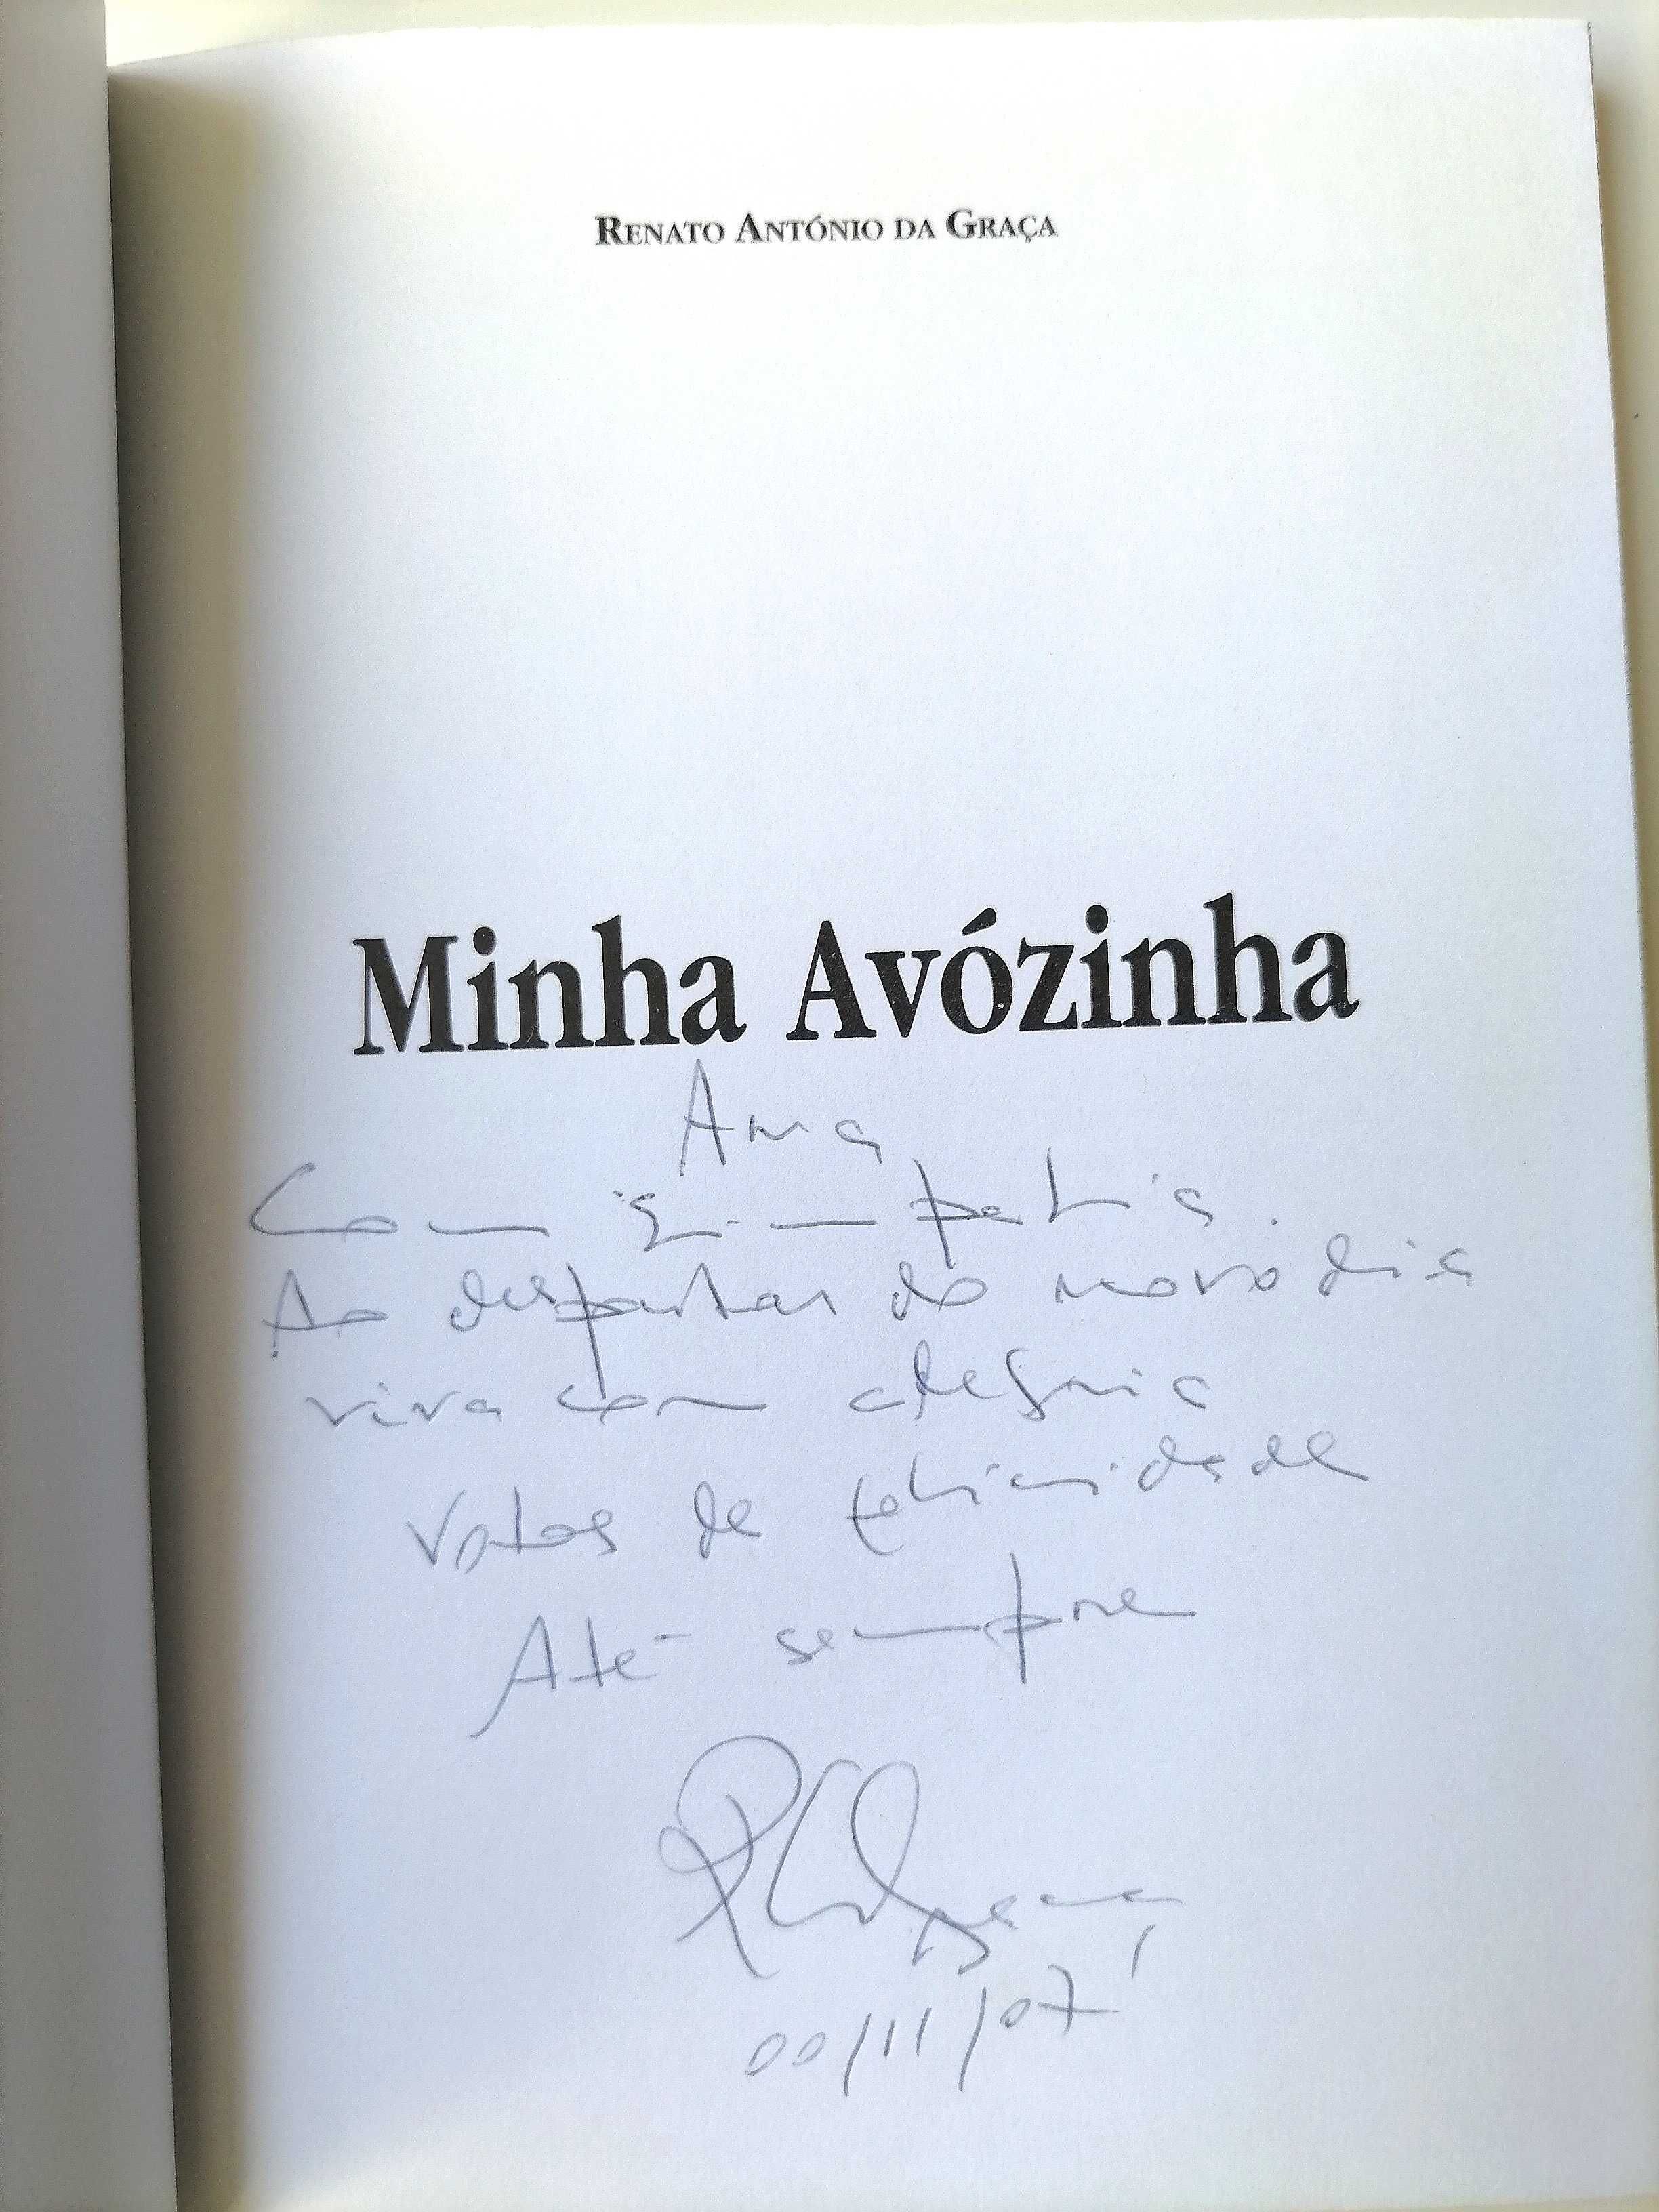 RENATO ANTÓNIO DA GRAÇA
Minha Avózinha
Ana
Com simpatia.
Ao despertar do novo dia
viva com alegria
Votos de felicidade
Até sempre
00/11/07